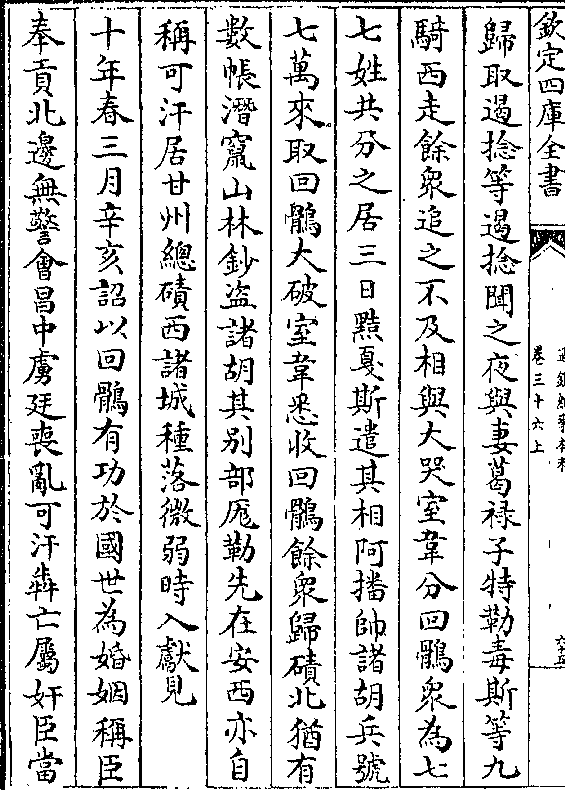 欽定四庫全書
通鑑紀事本末
卷三十六上
歸取遏捻等遏捻聞之夜與妻葛禄子特勒毒斯等九
騎西走餘衆追之不及相與大哭室韋分回鶻衆為七
七姓共分之居三日黠戛斯遣其相阿播帥諸胡兵號
七萬來取回鶻大破室韋悉收回鶻餘衆歸磧北猶有
數帳潛竄山林鈔盜諸胡其别部厖勒先在安西亦自
稱可汗居甘州總磧西諸城種落微弱時入獻見
十年春三月辛亥詔以回鶻有功於國世為婚姻稱臣
奉貢北邊無警會昌中虜廷喪亂可汗犇亡屬奸臣當